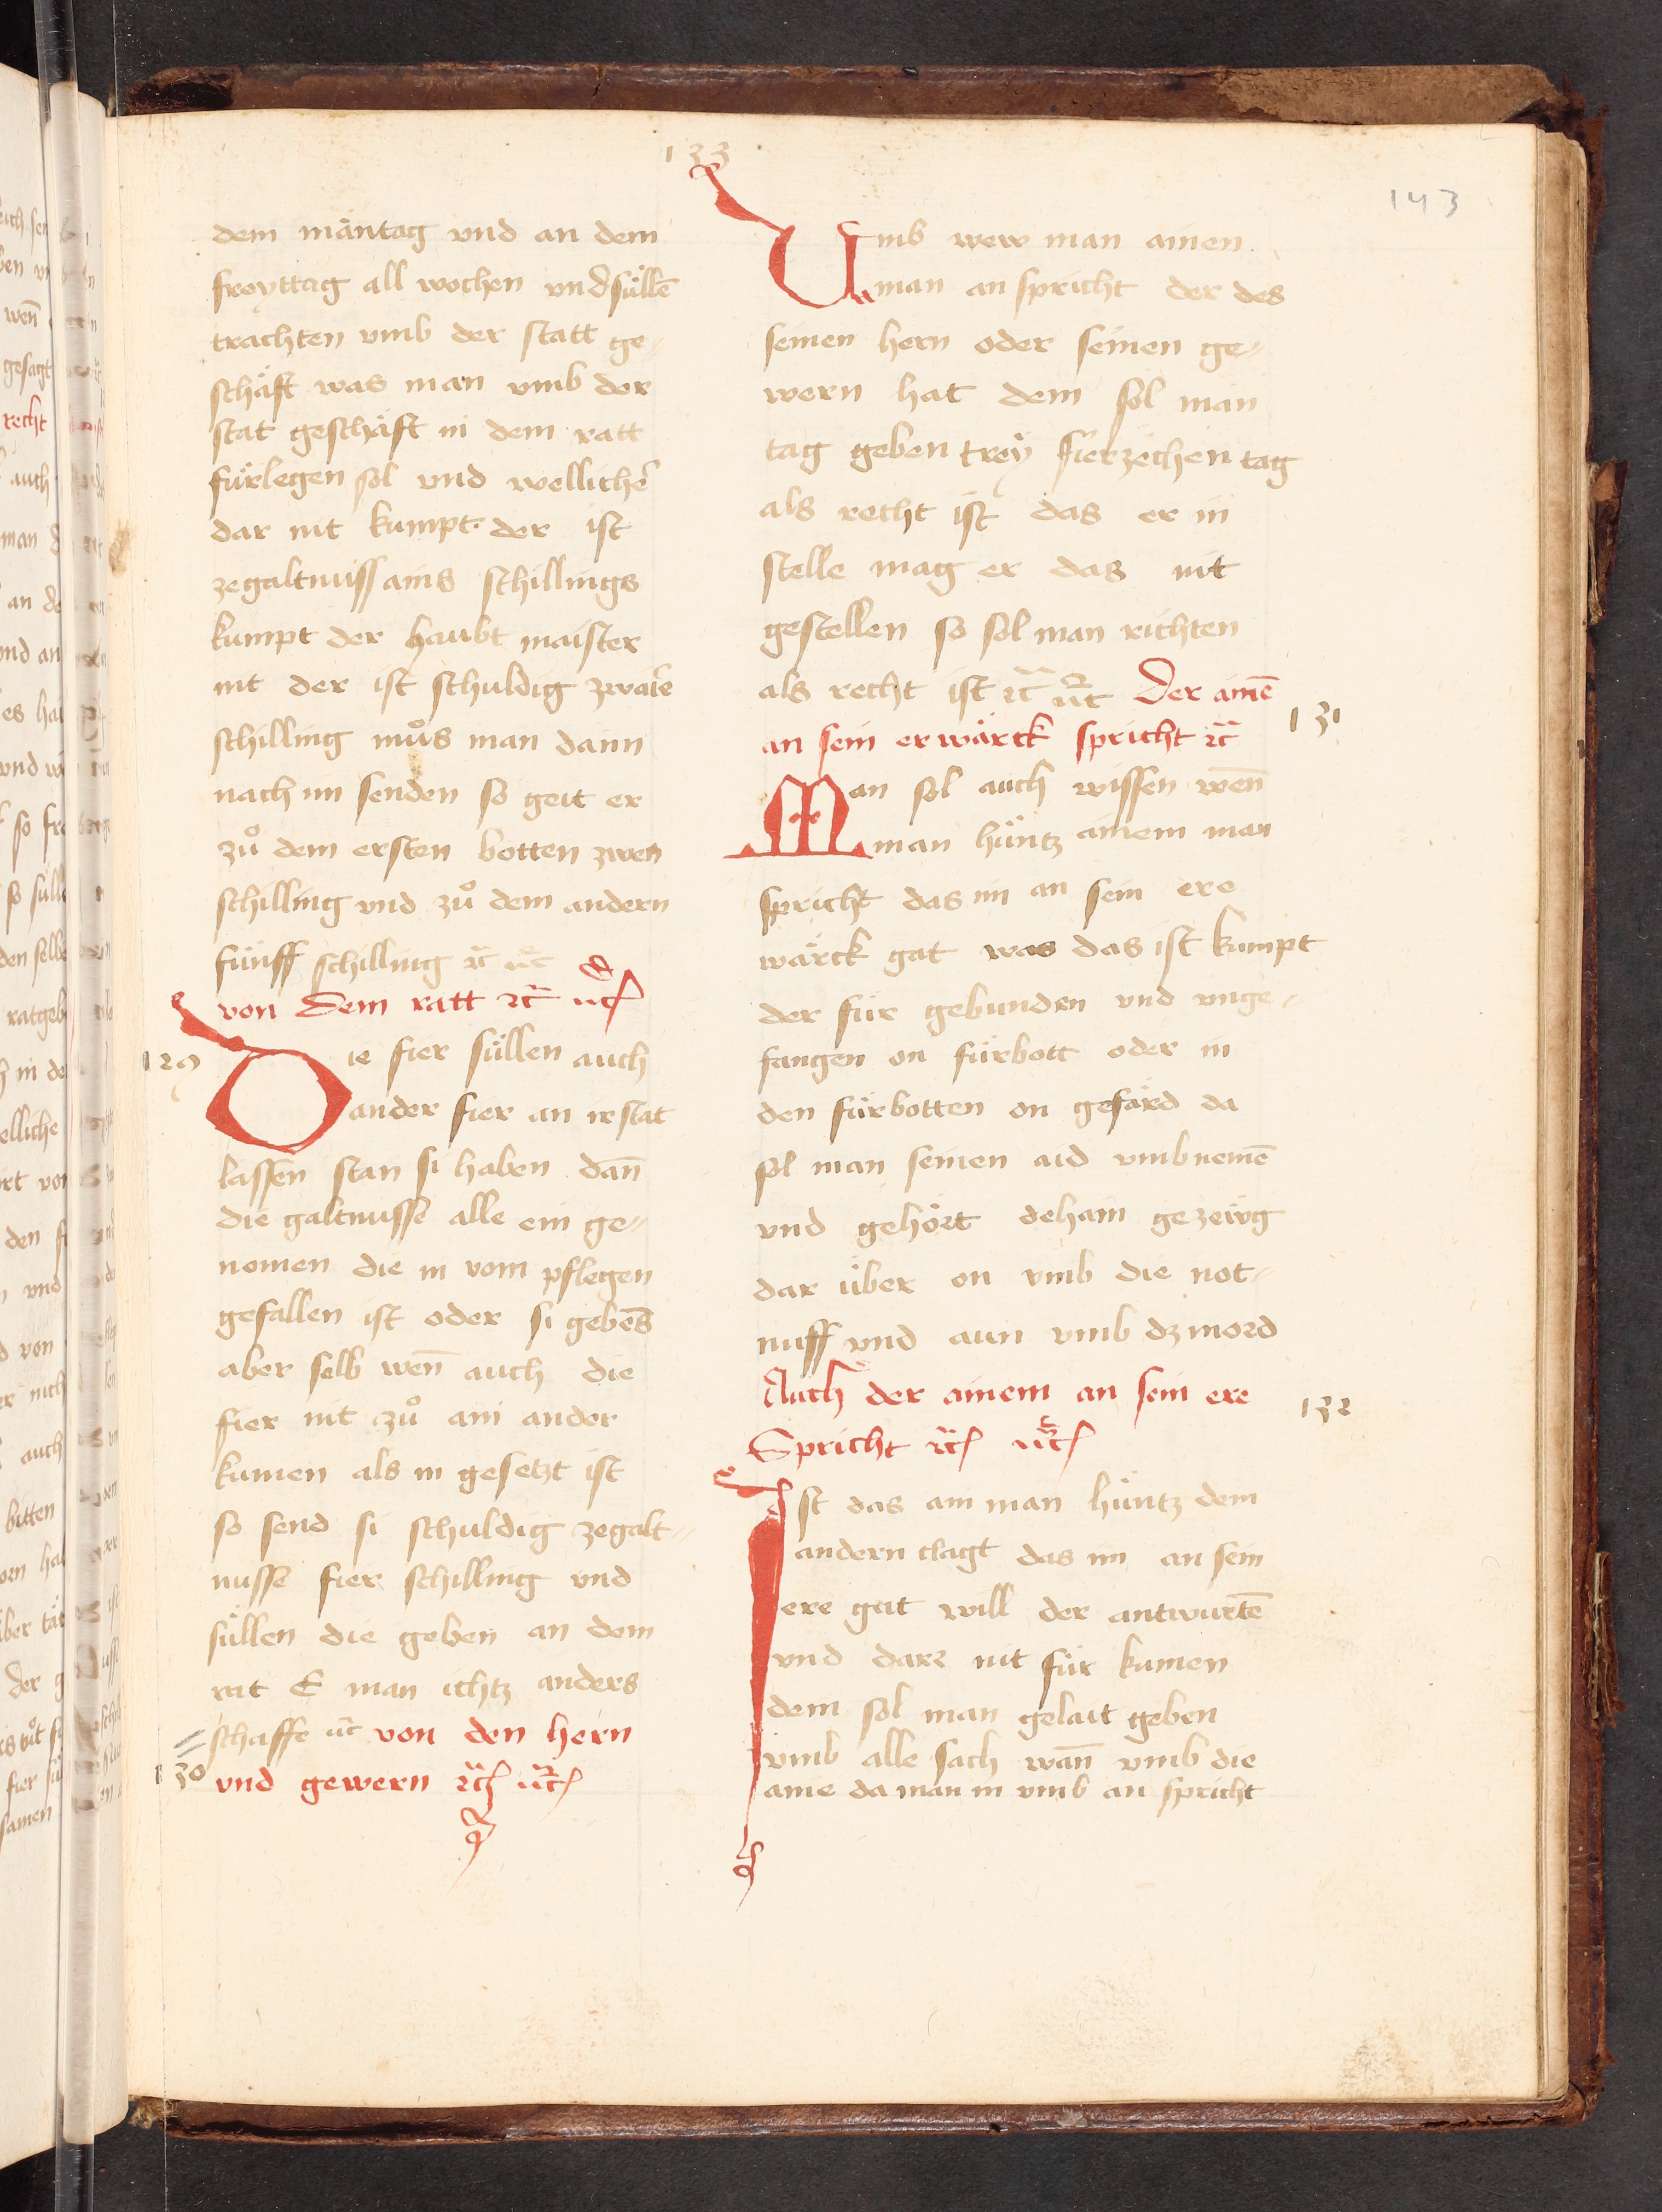 133
143
dem mäntag vnd an dem
freyttag all wochen vnd süllē
trachten vmb der statt ge„
schäft was man vmb der
stat geschäft in dem ratt
fürlegen sol vnd wellicher
dar nit kumpt der ist
zegaltnuss ains schillings
kumpt der haubt maister
nit der ist schuldig zwaie
schilling můs man dann
nach im senden so geit er
zů dem ersten botten zwen
schilling vnd zů dem andern
fünff schilling ꝛc̄ ꝛc̄
von dem ratt ꝛc̄ ꝛc̄
129
Die fier süllen auch
ander fier an ir stat
lassen stan si haben dañ
die galtnusse alle ein ge„
nomen die in vom pflegen
gefallen ist oder si gebens
aber selb weñ auch die
fier nit zů ain ander
kumen als in gesetzt ist
so send si schuldig zegalt„
nusse fier schilling vnd
süllen die geben an dem
rat E man ichtz anders
schaffe ꝛc̄ von den hern
130
vnd gewern ꝛc̄ ꝛc̄
Umb wew man ainen
man an spricht der des
seinen hern oder seinen ge„
wern hat dem sol man
tag geben trey fierzechen tag
als recht ist das er in
stelle mag er das nit
gestellen so sol man richten
als recht ist ꝛc̄ ꝛc̄ Der ainē
131
an sein erwärck spricht ꝛc̄
Man sol auch wissen weñ
man hüntz ainem man
spricht das im an sein ere
wärck gat was das ist kumpt
der für gebunden vnd vnge„
fangen on fürbott oder in
den fürbotten on gefärd da
sol man seinen aid vmb nemē
vnd gehört dehain gezewg
dar über on vmb die not„
nuff vnd aun vmb dz mord
Auch der ainem an sein ere
132
Spricht ꝛc̄ ꝛc̄
Ist das ain man hüntz dem
andern clagt das im an sein
ere gat will der antwurtē
vnd darr nit für kumen
dem sol man gelait geben
vmb alle sach wañ vmb die
aine da man in vmb an spricht